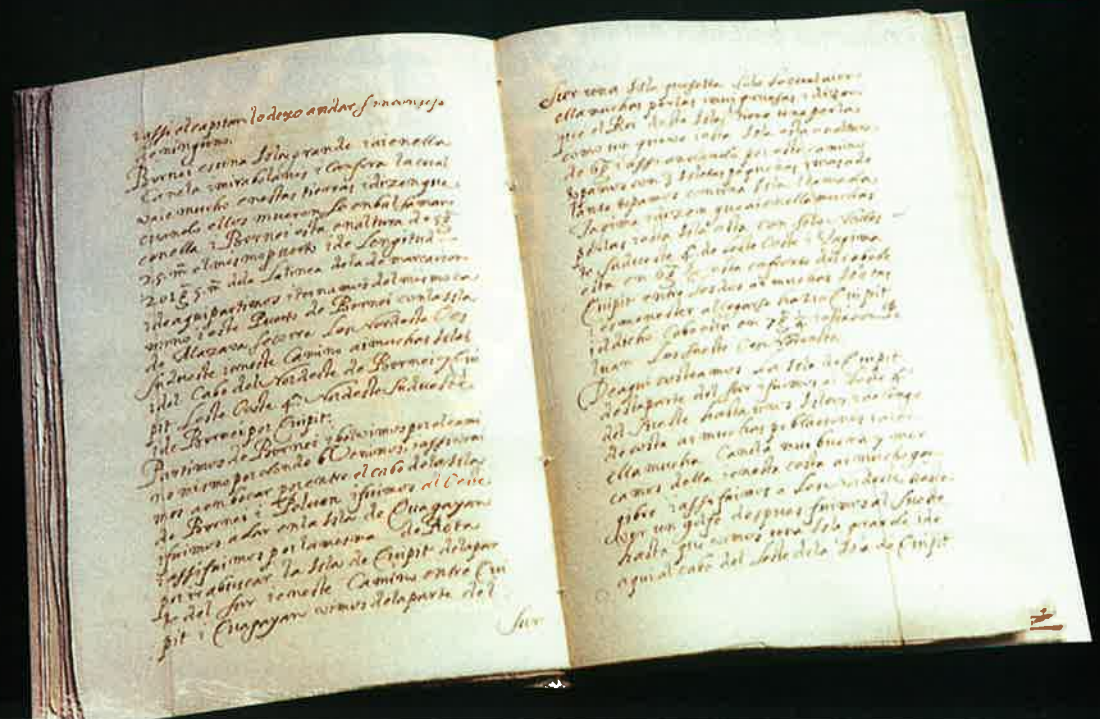 i assi el capitan lo dexo andar sin consejo
de ninguno.
Bornei es una Isla grande i ai en ella
Canela i mirabolanos i Canfora la cual
vale mucho en estas tierras i dizen que
cuando ellos mueren se enbalsaman
con ella i Bornei esta en altura de 5 g.
25 m. el mesmo puerto i de Longitud
201 g. 5 m. de la linea de la demarcacion
i de aqui partimos i tornamos del mesmo ca
mino i este Puerto de Bornei con la Isla
de se corre Les Nordeste Oes
Sudueste i en este Camino ai muchas Islas
i del Cabo del Nordeste de Bornei i Qui
pit Leste Oeste Nordeste Sudueste
de Bornei por Quipit.
Partimos de Bornei i bolvimos por el cami
no mismo por donde venimos i assi veni
mos a enbocar por entre el cabo de la Isla
de Bornei i Poluan i fuimos al Oeste
i fuimos a dar en la Isla de Quagayan
i assi fuimos por la mesma de Rota
por ir a buscar la Isla de Quipit de la par
te del Sur i en este Camino entre Qui
pit i Quagayan vimos de la parte del
Sur
Sur una Isla que Solo
ella muchas perlas mui i dizen
que el Rei desta Isla tiene una perla
como un guevo i esta Isla esta en altura
de 6 g. i assi andando por este camino
topamos con 3 Isletas pequeñas i mas ade
lante topamos con una Isla llamada
Tagima i dizen que ai en ella muchas
perlas i esta Isla esta con Solo
te Sudueste de Oeste i Tagima
esta en 6 g. esta enfrente del cabo de
Quipit entre los dos ai muchas Isletas
i es menester allegarse hazia Quipit
i el dicho Cabo esta en 7 g.

De aqui costeamos la Isla de Quipit
de la parte del Sur i fuimos al Leste
del Sueste hasta unas Isletas i a lo largo
de costa ai muchas poblaciones i ai en
ella mucha Canela mui buena i mer
camos della i en esta costa ai mucho gen
gibre i assi fuimos a Les Nordeste hasta
ver un golfo despues fuimos al Sueste
hasta que vimos una Isla grande i de
aqui al cabo del Leste de la Isla de Quipit